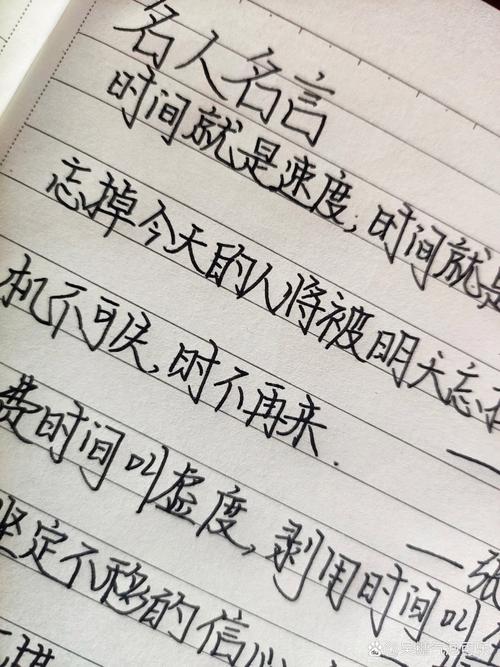 名人名言
时间就是速度,时间就是
忘掉今天的人将被明天忘
机不可失,时不再来.
费时间叫虚度,剥用时间叫
一张
坚定不移的信心